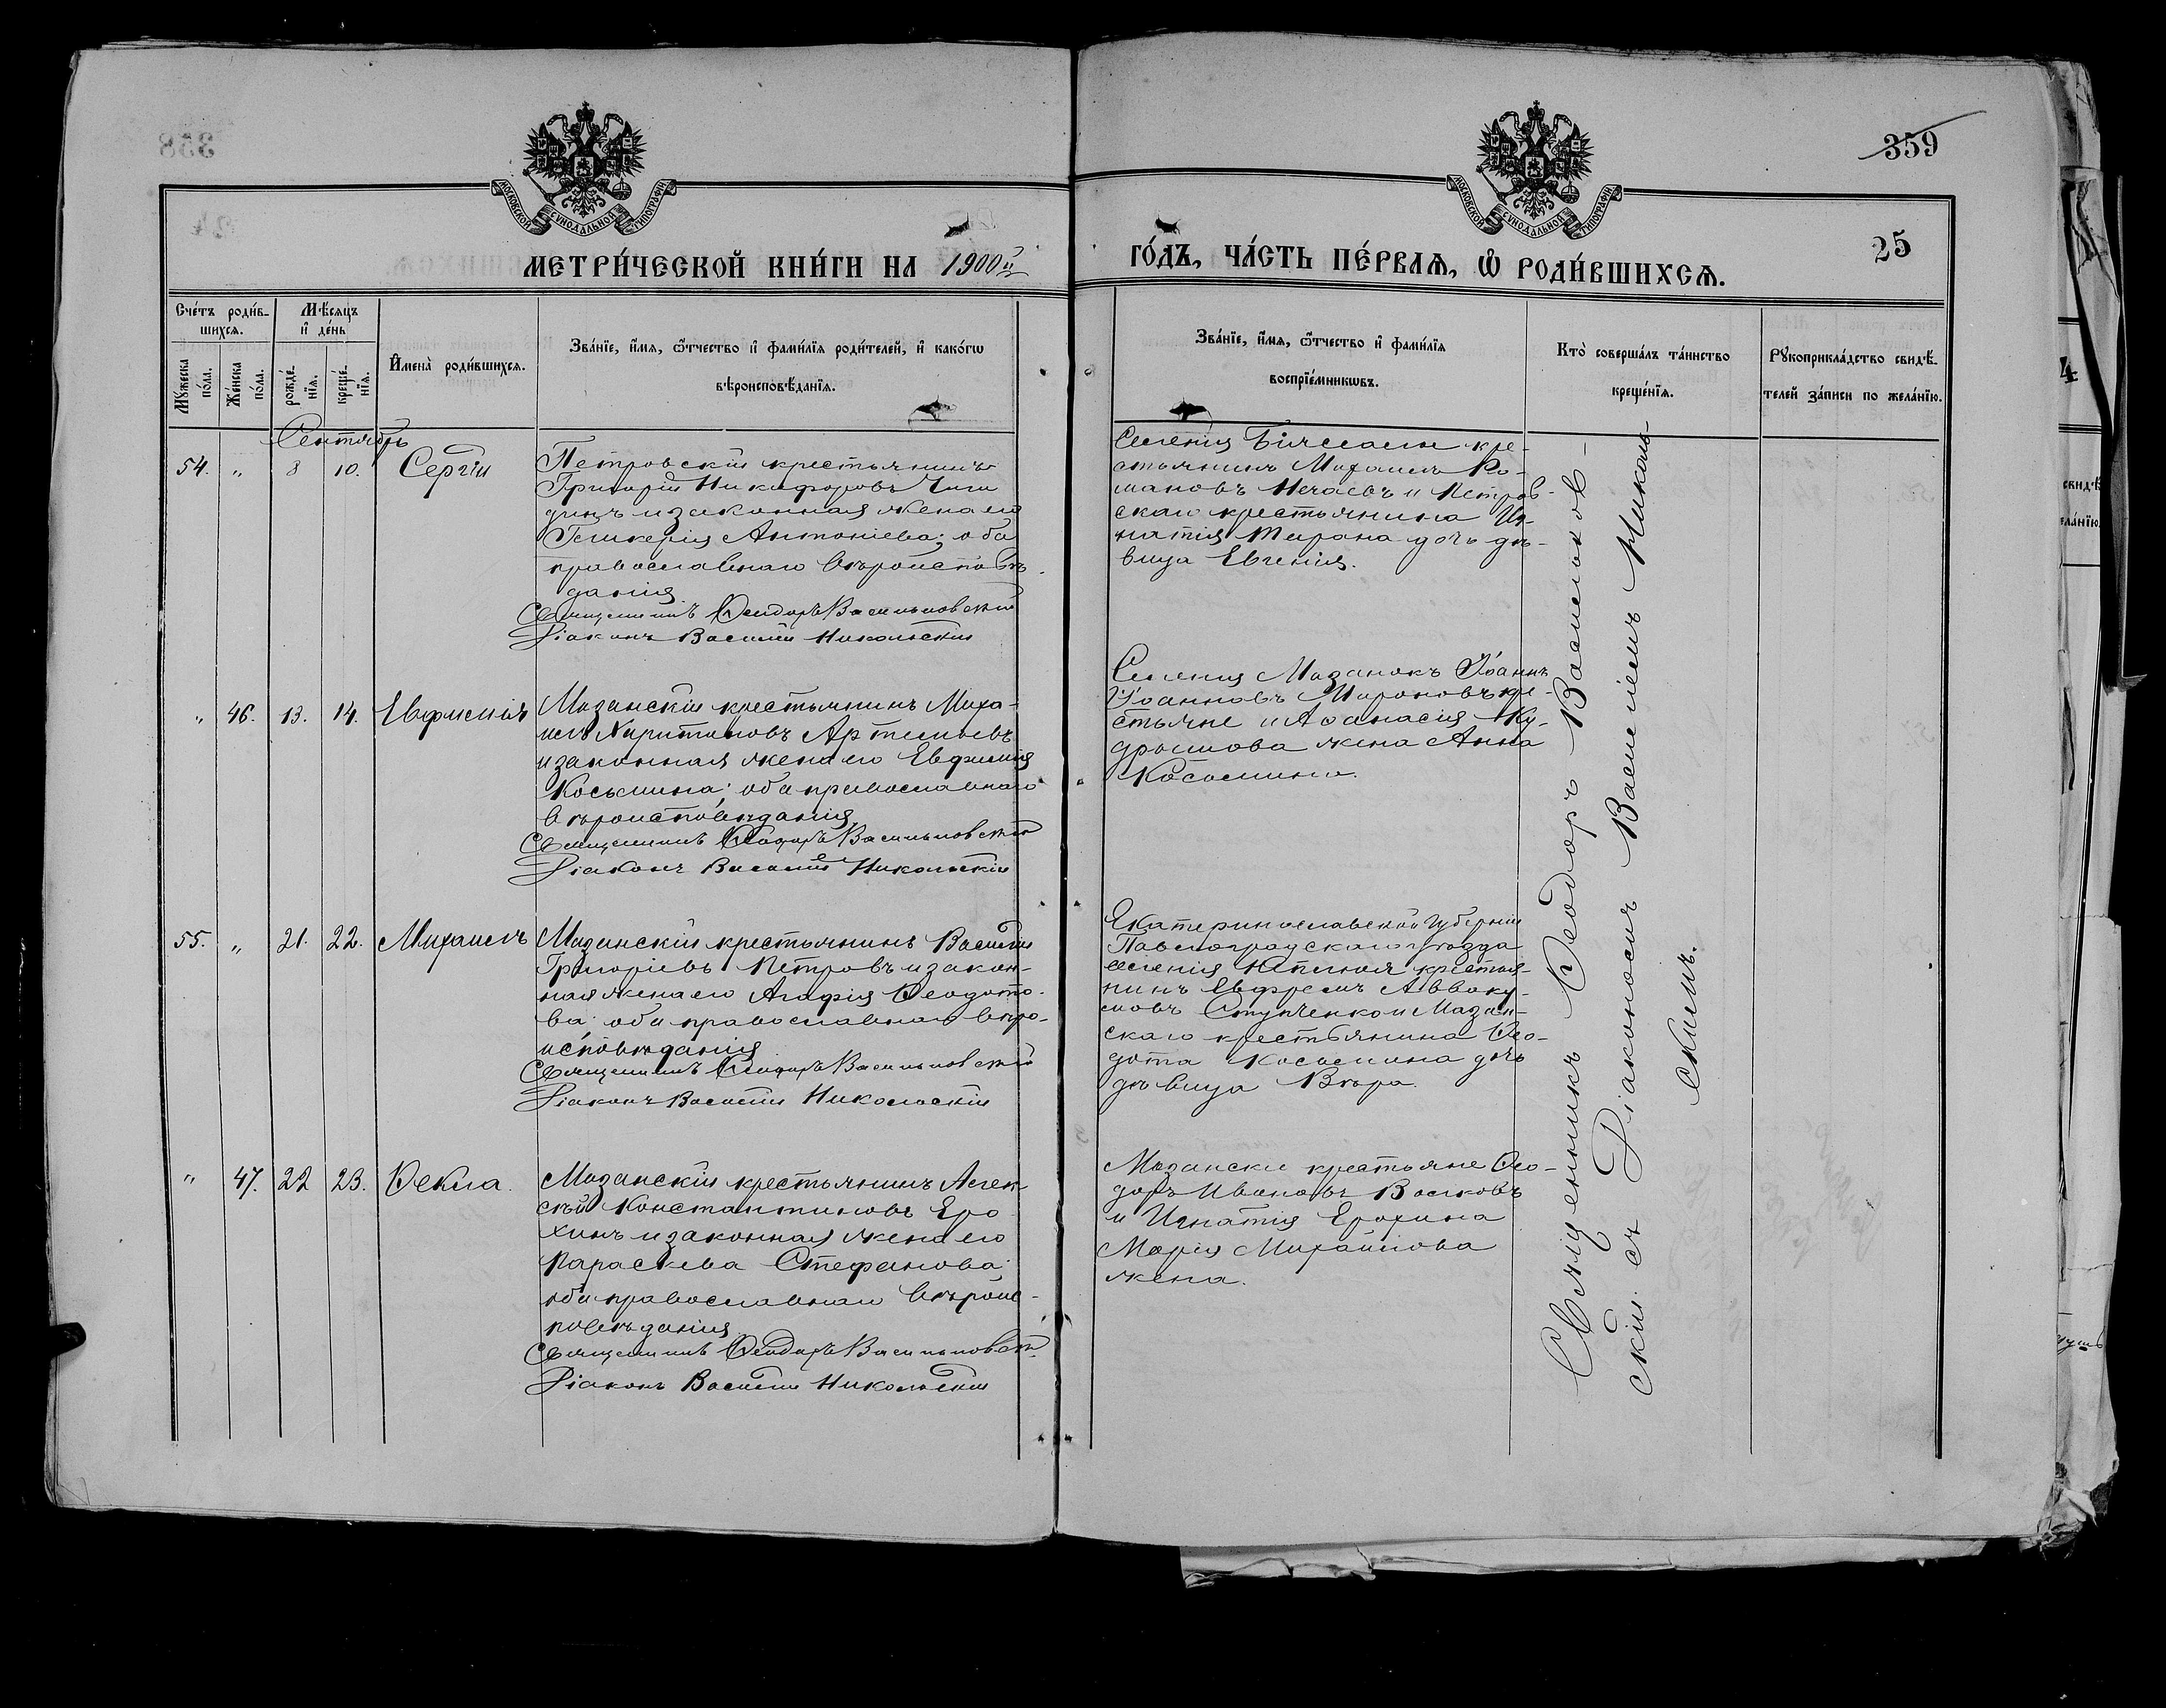 359
25
МОСКОВСКОЙ СѴНОДАЛЬНОЙ ТИПОГРАФІИ
МОСКОВСКОЙ СѴНОДАЛЬНОЙ ТИПОГРАФІИ
МЕТРИ́ЧЕСКОЙ КНИ́ГИ НА 1900й
ГО́ДЪ, ЧА́СТЬ ПЕ́РВАѦ, Ѡ҆ РОДИ́ВШИХСѦ.
Сче́тъ роди́в-
шихсѧ.
Мꙋ́жеска по́ла.
Же́нска по́ла.
Мѣ́сѧцъ
и҆ де́нь
рожде́-
нїѧ.
креще́-
нїѧ.
И҆мена̀ роди́вшихсѧ.
Зва́нїе, и҆́мѧ, ѻ҆́тчество и҆ фами́лїѧ роди́телей, и҆ како́гѡ
вѣроисповѣ́данїѧ.
Зва́нїе, и҆́мѧ, ѻ҆́тчество и҆ фами́лїѧ
воспрїе́мникѡвъ.
Кто̀ соверша́лъ та́инство
креще́нїѧ.
Рꙋкоприкла́дство свидѣ́-
телей за́писи по жела́нїю.
Сентябрь
54. " 8 10. Сергій
Петровскій крестьянинъ
Григорій Никифоровъ Чиги
динъ и законная жена его
Гликерія Антоніева; оба
православнаго вѣроисповѣ-
данія
Священникъ Ѳеодоръ Васильковскій
Діаконъ Василій Никольскій
Селенія кре-
стьянинъ Михаилъ Ро-
мановъ Нечаевъ и Петров-
скаго крестьянина Иг-
натія Тирана дочь дѣ-
вица Евгенія.
" 46. 13. 14. Евфимія
Мазанскій крестьянинъ Миха-
илъ Харитоновъ Артемьевъ
и законная жена его Евфимія
Косьмина; оба православнаго
вѣроисповѣданія
Священникъ Ѳеодоръ Васильковскій
Діаконъ Василій Никольскій
Селенія Мазанокъ Іоаннъ
Іоанновъ Мироновъ кре-
стьяне и Аѳанасія Ку-
дряшова жена Анна
Косьмина.
55. " 21. 22. Михаилъ
Мазанскій крестьянинъ Василій
Григоріевъ Петровъ и закон-
ная жена его Агафія Ѳеодото-
ва; оба православнаго вѣро-
исповѣданія
Священникъ Ѳеодоръ Васильковскій
Діаконъ Василій Никольскій
Екатеринославской губерніи
Павлоградскаго уѣзда
селенія крестья-
нинъ Ефремъ Аввоку-
мовъ Ступченко и Мазан-
скаго крестьянина Ѳео-
дота Косьмина дочь
дѣвица Вѣра.
" 47. 22 23. Ѳекла.
Мазанскій крестьянинъ Алек-
сѣй Константиновъ Еро
хинъ и законная жена его
Параскева Стефанова;
оба православнаго вѣроис-
повѣданія
Священникъ Ѳеодоръ Васильковскій
Діаконъ Василій Никольскій
Мазански крестьяне Ѳео-
доръ Ивановъ Волковъ
и Игнатія Ерохина
Марія Михайлова
жена.
Священникъ Ѳеодоръ Васильков-
скій съ Діакономъ Василіемъ Николь-
скимъ.